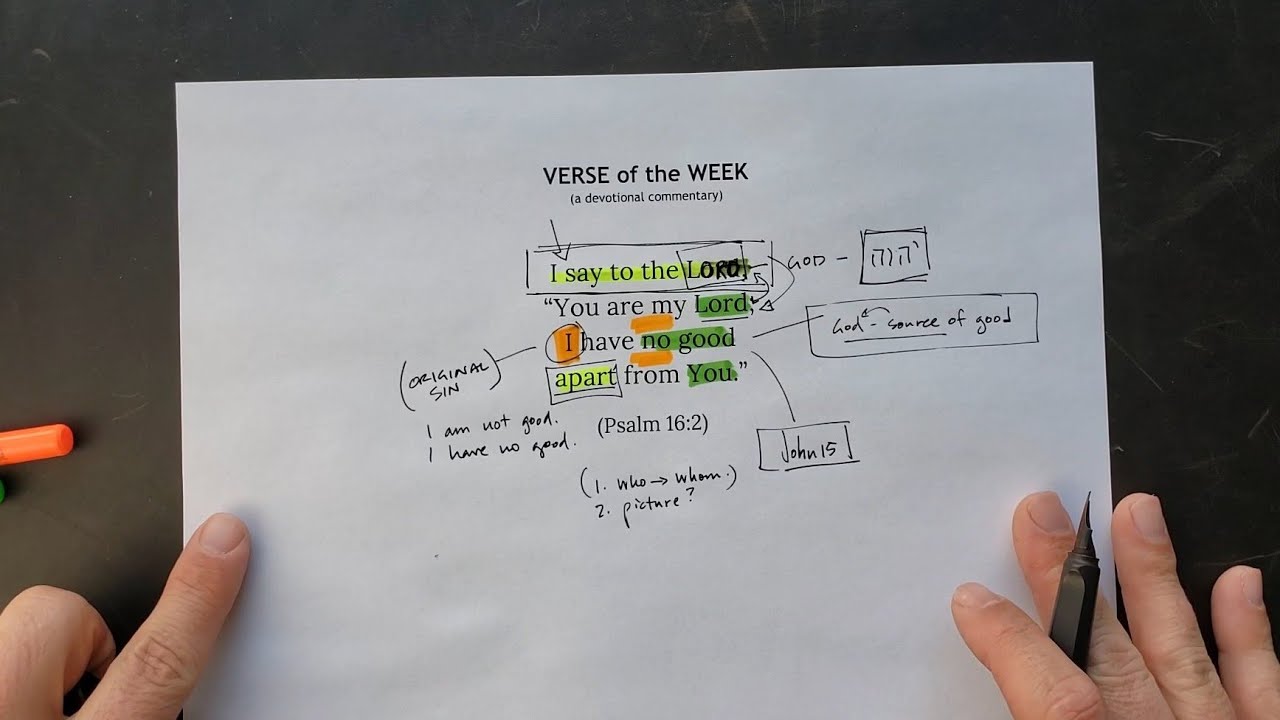 VERSE of the WEEK
(a devotional commentary)
I say to the LORD,
GOD – יהוה
“You are my Lord;
God – source of good
I have no good
(ORIGINAL SIN)
apart from You.”
I am not good.
I have no good.
(Psalm 16:2)
John 15
(1. who → whom.)
2. picture?